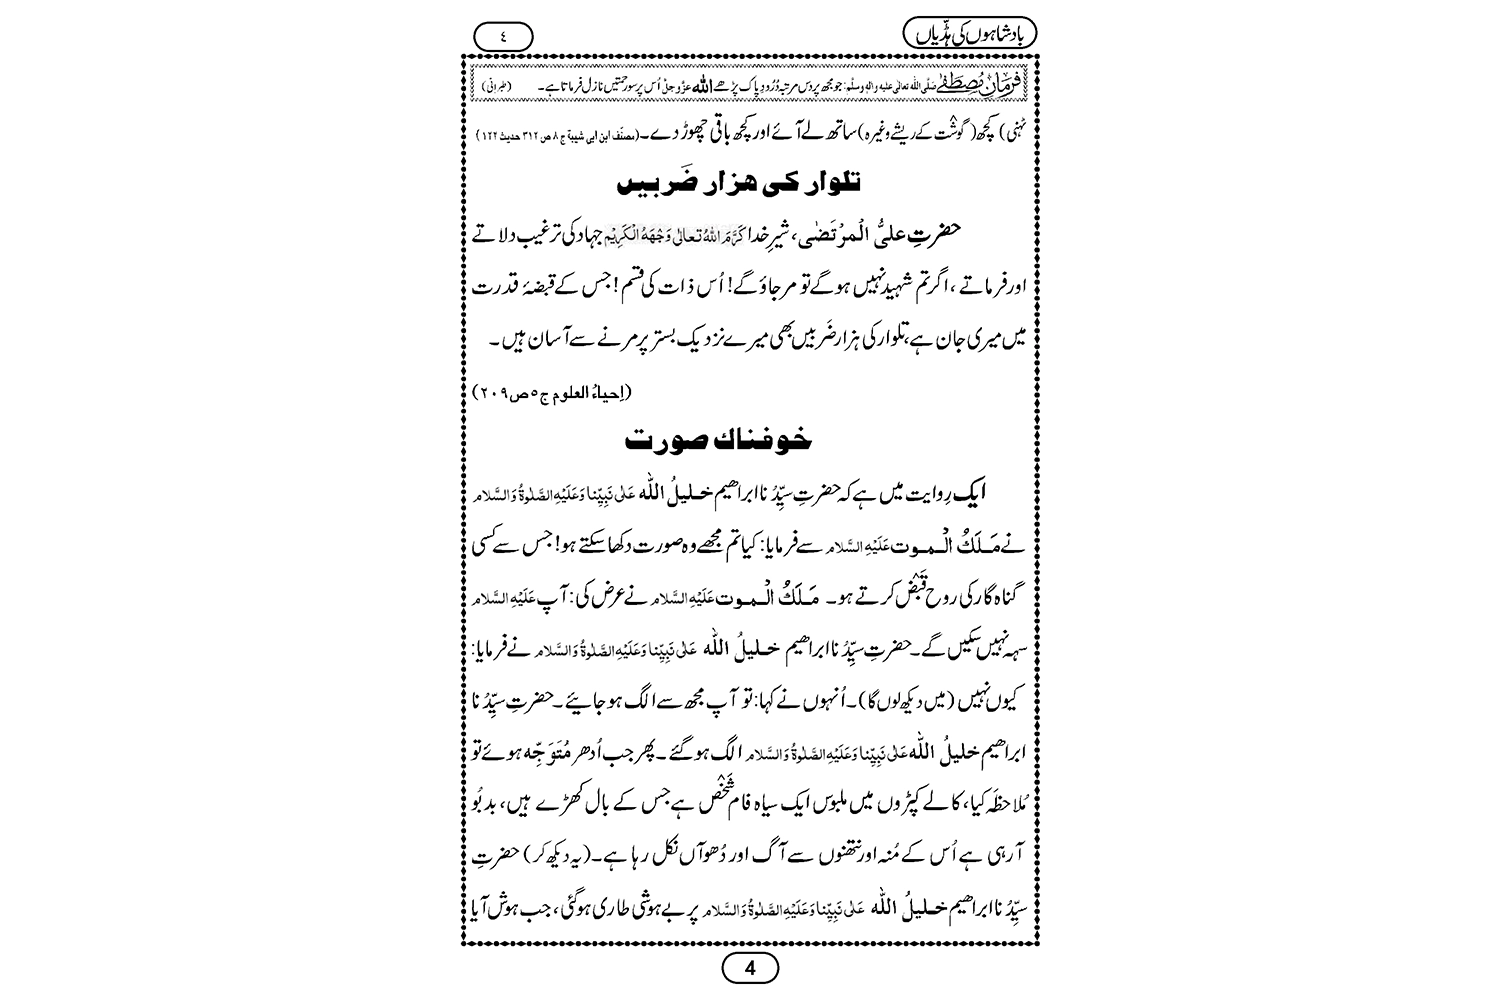 بادشاہوں کی ہڈّیاں
٤
فرمانِ مُصطَفٰے صلَّی اللہ تعالٰی علیہ والہٖ وسلَّم: جو مجھ پر دس مرتبہ دُرُودِ پاک پڑھے اللہ عزَّوجلَّ اُس پر سو رحمتیں نازل فرماتا ہے۔ (طبرانی)
ٹہنی) کچھ (گوشت کے ریشے وغیرہ) ساتھ لے آئے اور کچھ باقی چھوڑ دے۔ (مصنّف ابن ابی شیبۃ ج ۸ ص ۳۱۲ حدیث ۱۲۲)
تلوار کی ہزار ضَربیں
حضرتِ علیُّ الْمرْتَضٰی، شیرِ خدا کَرَّمَ اللہُ تعالٰی وَجْهَهُ الْکَرِیْم جہاد کی ترغیب دلاتے
اور فرماتے، اگر تم شہید نہیں ہوگے تو مر جاؤ گے! اُس ذات کی قسم! جس کے قبضۂ قدرت
میں میری جان ہے، تلوار کی ہزار ضَربیں بھی میرے نزدیک بستر پر مرنے سے آسان ہیں۔
(اِحیاءُ العلوم ج ۵ ص ۲۰۹)
خوفناک صورت
ایک رِوایت میں ہے کہ حضرتِ سیِّدُنا ابراھیم خلیلُ اللہ عَلٰی نَبِیِّنا وَعَلَیْهِ الصَّلٰوۃُ وَالسَّلام
نے مَلَکُ الْموت عَلَیْهِ السَّلام سے فرمایا: کیا تم مجھے وہ صورت دکھا سکتے ہو! جس سے کسی
گناہ گار کی روح قَبْض کرتے ہو۔ مَلَکُ الْموت عَلَیْهِ السَّلام نے عرض کی: آپ عَلَیْهِ السَّلام
سہہ نہیں سکیں گے۔ حضرتِ سیِّدُنا ابراھیم خلیلُ اللہ عَلٰی نَبِیِّنا وَعَلَیْهِ الصَّلٰوۃُ وَالسَّلام نے فرمایا:
کیوں نہیں (میں دیکھ لوں گا)۔ اُنہوں نے کہا: تو آپ مجھ سے الگ ہو جایئے۔ حضرتِ سیِّدُنا
ابراھیم خلیلُ اللہ عَلٰی نَبِیِّنا وَعَلَیْهِ الصَّلٰوۃُ وَالسَّلام الگ ہو گئے۔ پھر جب اُدھر مُتَوَجِّہ ہوئے تو
مُلاحظَہ کیا، کالے کپڑوں میں ملبوس ایک سیاہ فام شَخْص ہے جس کے بال کھڑے ہیں، بدبُو
آرہی ہے اُس کے مُنہ اور نتھنوں سے آگ اور دُھوآں نکل رہا ہے۔ (یہ دیکھ کر) حضرتِ
سیِّدُنا ابراھیم خلیلُ اللہ عَلٰی نَبِیِّنا وَعَلَیْهِ الصَّلٰوۃُ وَالسَّلام پر بے ہوشی طاری ہوگئی، جب ہوش آیا
4